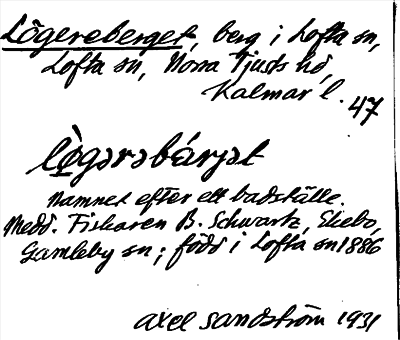 Lögereberget, berg i Lofta sn,
Lofta sn, Norra Tjusts hd,
Kalmar l. 47
lö̀gərəbárjət
Namnet efter ett badställe.
Medd. Fiskaren B. Schwartz, Ekebo,
Gamleby sn; född i Lofta sn 1886
Axel Sandström 1931